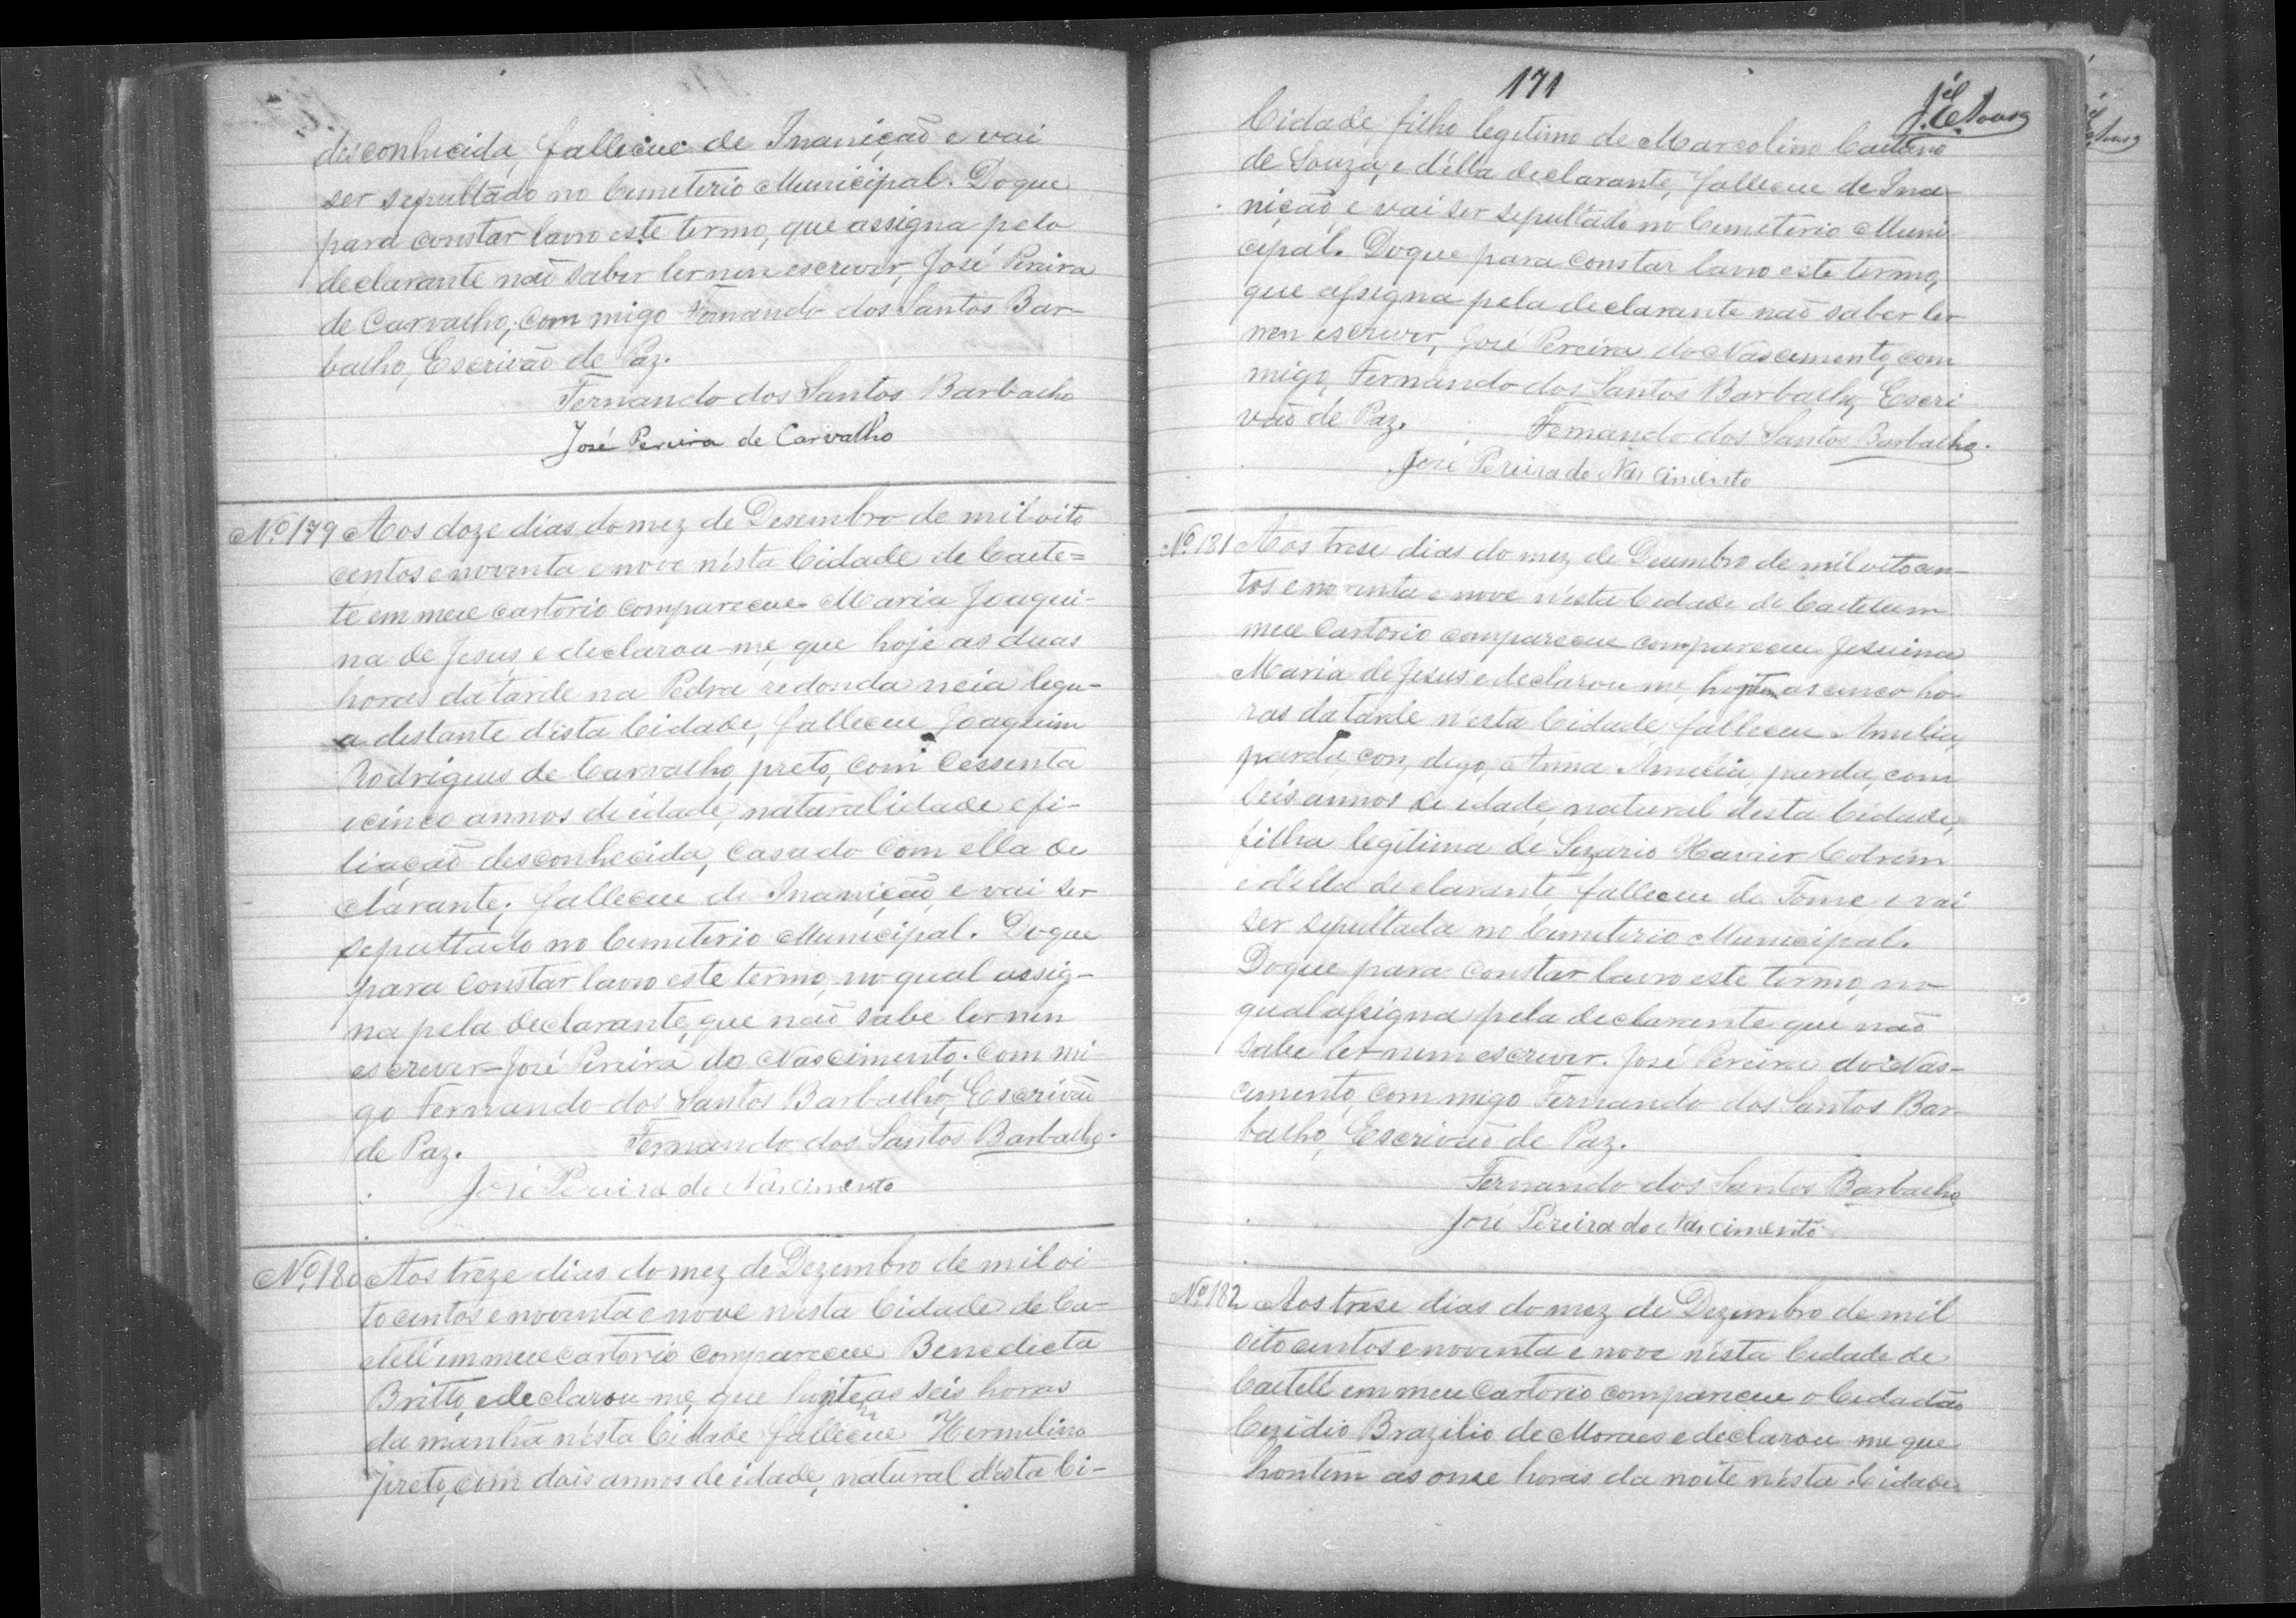 desconhecida, falleceu de Inanição e vai
ser sepultado no Cemeterio Municipal. Do que
para constar lavro este termo, que assigna pelo
declarante não saber ler nem escrever, José Pereira
de Carvalho, com migo Fernando dos Santos Bar-
balho, Escrivão de Paz.
Fernando dos Santos Barbalho
José Pereira de Carvalho
Nº 179 Aos doze dias do mez de Desembro de mil oito
centos e noventa e nove n'esta Cidade de Caete=
té em meu cartorio compareceu Maria Joaqui-
na de Jesus, e declarou-me, que hoje as duas
horas da tarde na Pedra redonda meia legu-
a distante d'esta Cidade, falleceu Joaquim
Rodrigues de Carvalho, preto, com cessenta
e cinco annos de idade, naturalidade e fi-
liação desconhecida, casado com ella de
clarante; falleceu de Inanição, e vai ser
sepultado no Cemeterio Municipal. Do que
para constar lavro este termo, no qual assig-
na pela declarante, que não sabe ler nem
escrever José Pereira do Nascimento, com mi
go Fernando dos Santos Barbalho, Escrivão
de Paz. Fernando dos Santos Barbalho.
José Pereira do Nascimento
Nº 180 Aos treze dias do mez de Dezembro de mil oi
to centos e noventa e nove nesta Cidade de Ca-
eteté em meu cartorio compareceu Benedicta
Britto, e declarou me, que hontem as seis horas
da manhã n'esta Cidade falleceu Hermelino
preto, com dois annos de idade, natural d'esta Ci-
171
J.él C. Sousa
Cidade, filho legitimo de Marcolino Caetano
de Souza, e d'ella declarante, falleceu de Ina-
nição, e vai ser sepultado no Cemeterio Muni
cipal. Do que para constar lavro este termo,
que assigna pela declarante não saber ler
nem escrever, José Pereira do Nascimento, com
migo, Fernando dos Santos Barbalho, Escri
vão de Paz. Fernando dos Santos Barbalho.
José Pereira do Nascimento
Nº 181 Aos trese dias do mez de Desembro de mil oitocen-
tos e noventa e nove n'esta Cidade de Caeteteem
meu Cartorio compareceu compareceu Jesuina
Maria de Jesus e declarou me, hontem as cinco ho-
ras da tarde n'esta Cidade falleceu Amelia,
parda, con, digo, Anna Amelia, parda, com
seis annos de idade, natural desta Cidade,
filha legitima de Sezario Xavier Cotrim
e d'ella declarante, falleceu de Fome e vai
ser sepultada no Cemeterio Municipal.
Do que para constar lavro este termo, no
qual assigna pela declarante que não
sabe ler nem escrever. José Pereira do Nas-
cimento, com migo Fernando dos Santos Bar-
balho, Escrivão de Paz.
Fernando dos Santos Barbalho
José Pereira do Nascimento
Nº 182 Aos trese dias do mez de Dezembro de mil
oito centos e noventa e nove n'esta Cidade de
Caeteté em meu Cartorio compareceu o Cidadão
Cezidio Brazilio de Moraes e declarou me que
hontem as onse horas da noite n'esta Cidade